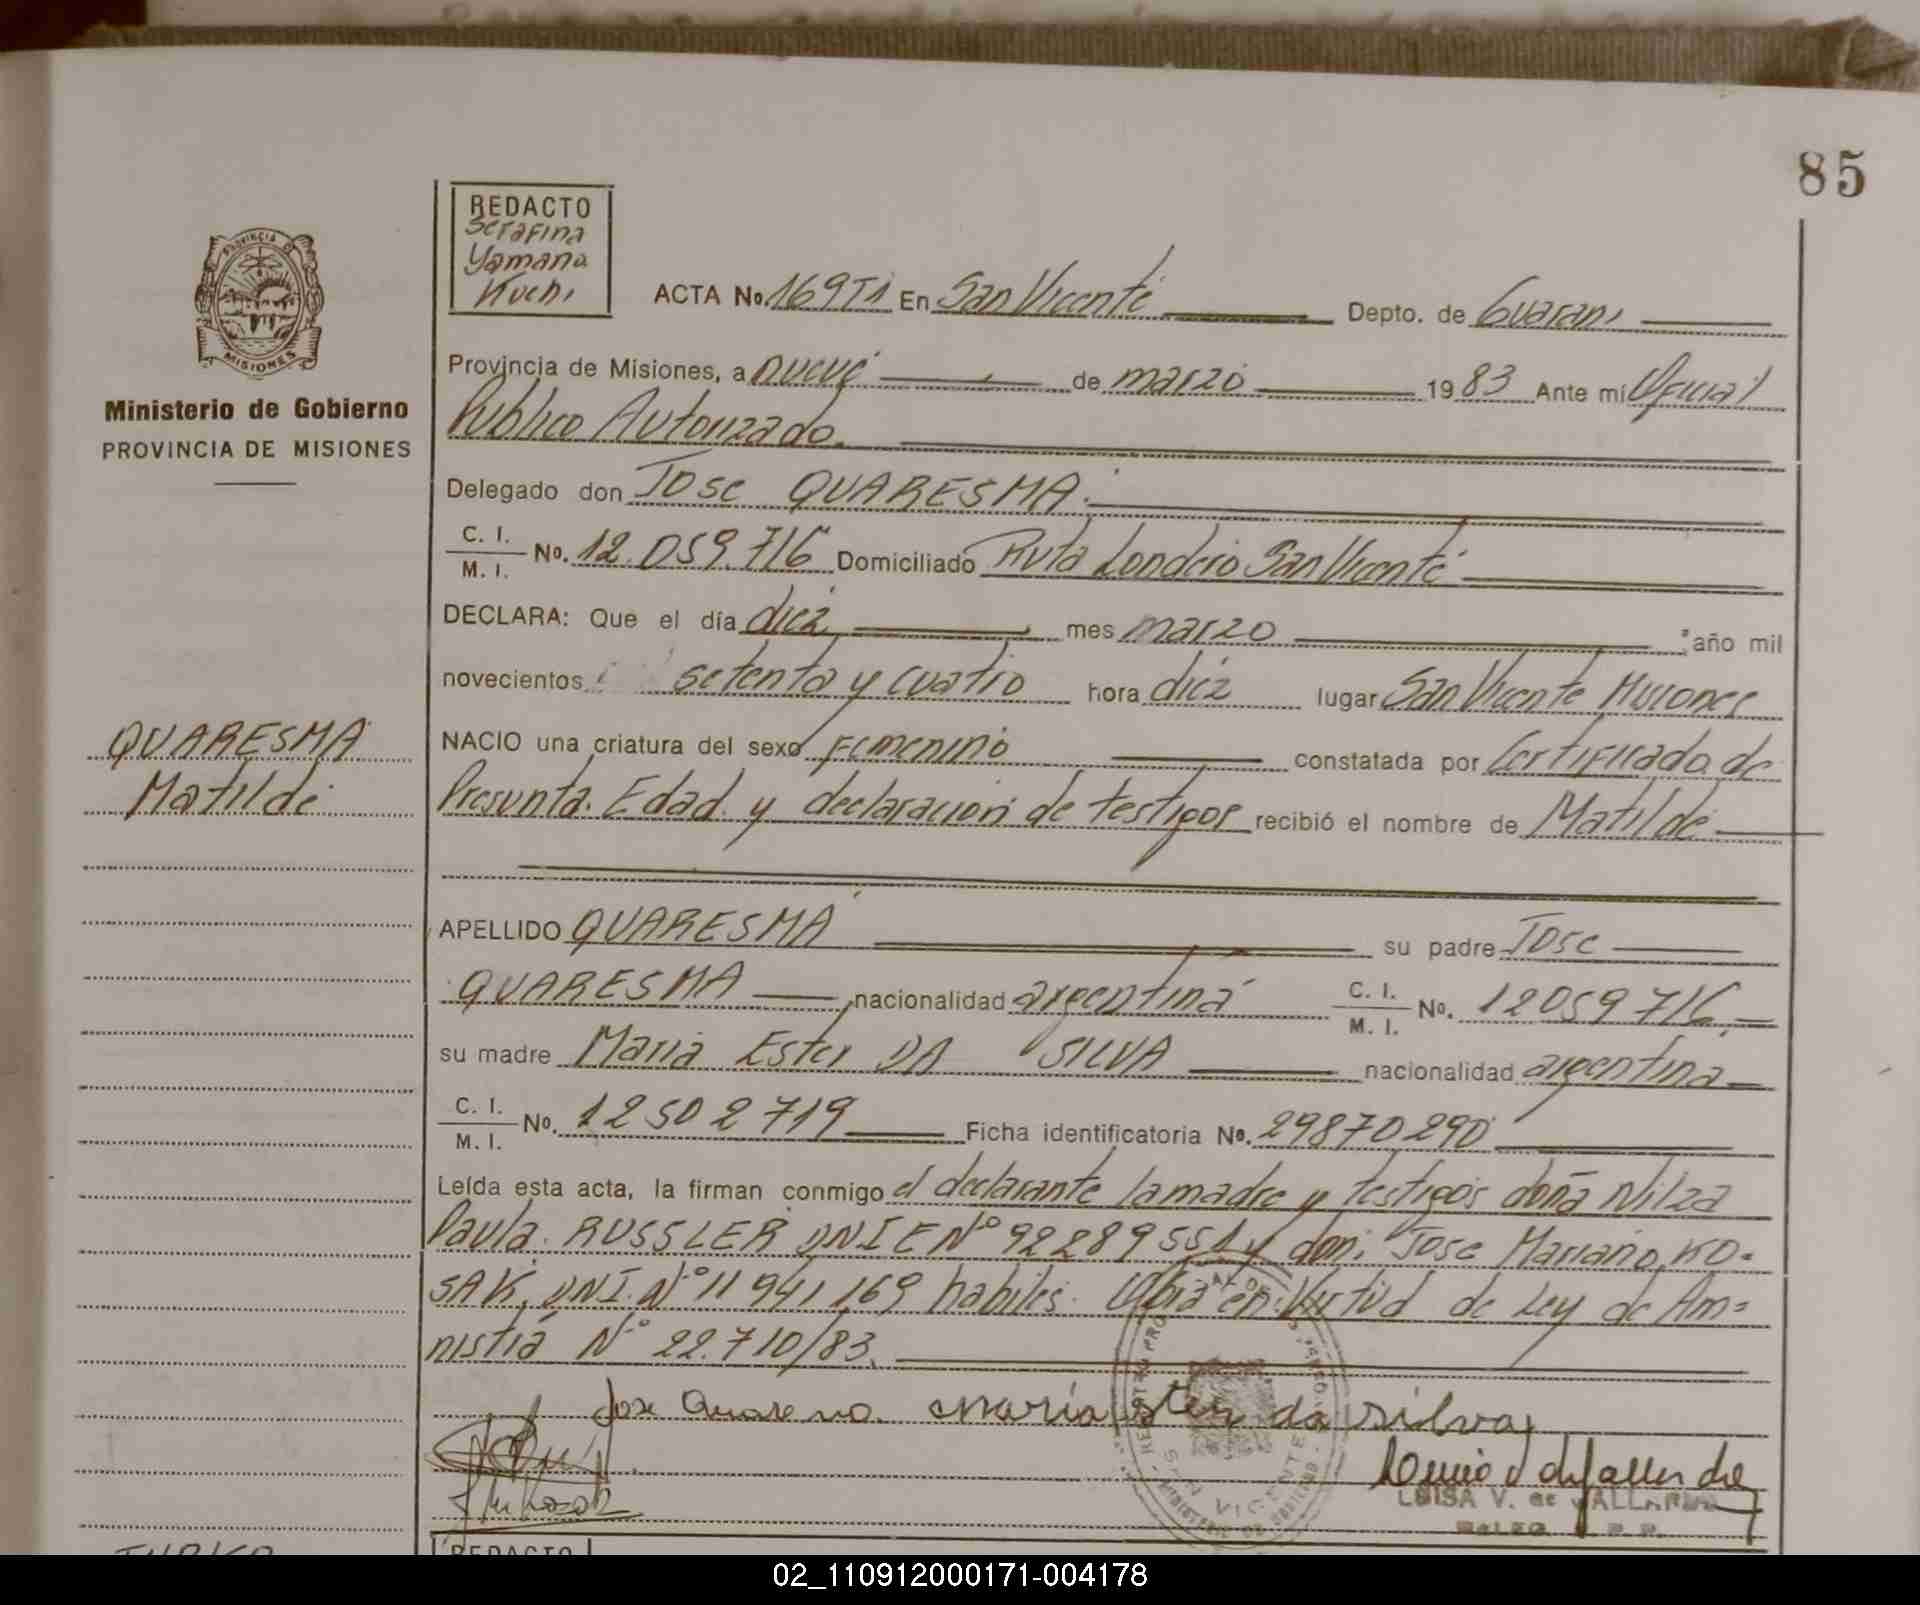 85
REDACTO
Serafina
Yamana
Kuchi
PROVINCIA DE
MISIONES
Ministerio de Gobierno
PROVINCIA DE MISIONES
ACTA No. 169T1 En San Vicente Depto. de Guarani
Provincia de Misiones, a nueve de marzo 1983 Ante mi Oficial
Publico Autorizado.
Delegado don Jose QUARESMA.
C. I.
M. I. No. 12.059.716 Domiciliado Ruta Londero San Vicente
DECLARA: Que el día diez mes marzo año mil
novecientos setenta y cuatro hora diez lugar San Vicente Misiones
NACIO una criatura del sexo Femenino constatada por Certificado de
Presunta. Edad. y declaracion de testigos recibió el nombre de Matilde
QUARESMA
Matilde
APELLIDO QUARESMA su padre Jose
QUARESMA nacionalidad argentina C. I. M. I. No. 12059716
su madre Maria Ester DA SILVA nacionalidad argentina
C. I.
M. I. No. 12502719 Ficha identificatoria No. 29870290
Leída esta acta, la firman conmigo el declarante la madre y testigos doña Nilza
Paula. RUSSLER DNIE Nº 92289551 y don. Jose Mariano KO-
SAK, DNI. Nº 11941169 habiles. Obra en Virtud de Ley de Am=
nistia Nº 22.710/83.
Jose Quaresma. Maria Ster da Silva
SAN VICENTE
LUISA V. de
02_110912000171-004178